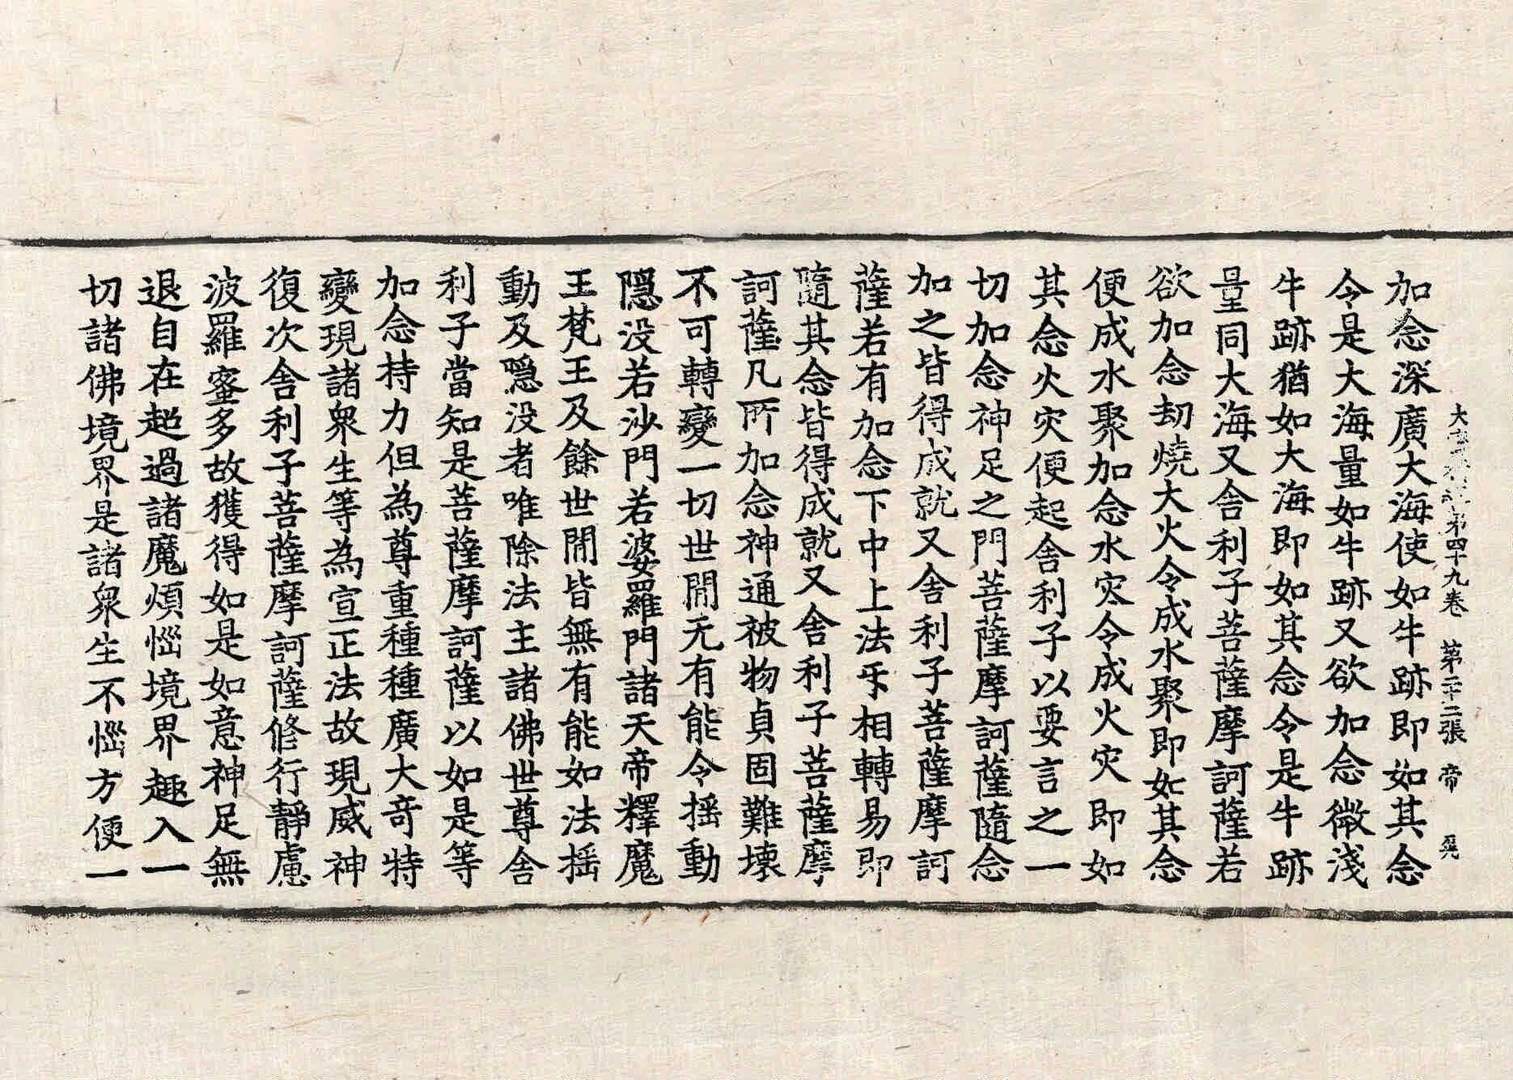 加念深廣大海使如牛跡即如其念
令是大海量如牛跡又欲加念微淺
牛跡猶如大海即如其念令是牛跡
量同大海又舍利子菩薩摩訶薩若
欲加念劫燒大火令成水聚即如其念
便成水聚加念水灾令成火灾即如
其念火灾便起舍利子以要言之一
切加念神足之門菩薩摩訶薩隨念
加之皆得成就又舍利子菩薩摩訶
薩若有加念下中上法㸦相轉易即
隨其念皆得成就又舍利子菩薩摩
訶薩凡所加念神通被物貞固難壞
不可轉變一切世閒无有能令搖動
隱没若沙門若婆羅門諸天帝釋魔
王梵王及餘世閒皆無有能如法搖
動及隱没者唯除法主諸佛世尊舍
利子當知是菩薩摩訶薩以如是等
加念持力但為尊重種種廣大奇特
變現諸衆生等為宣正法故現威神
復次舍利子菩薩摩訶薩修行靜慮
波羅蜜多故獲得如是如意神足無
退自在超過諸魔煩惱境界趣入一
切諸佛境界是諸衆生不惱方便一
大 第四十九卷 第二十二張 帝